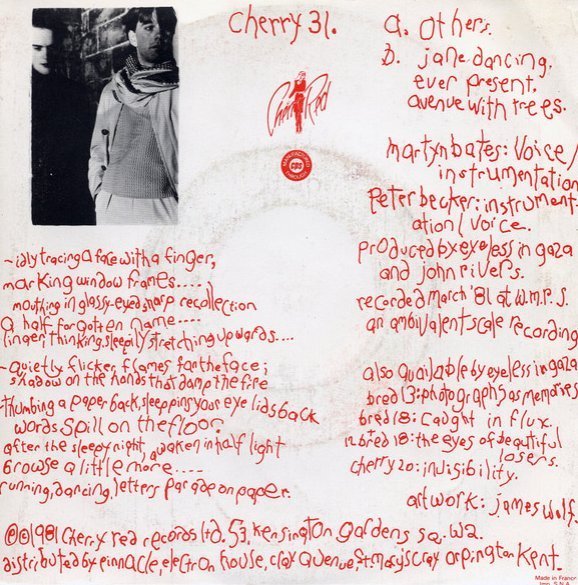 Cherry 31.
a. others.
b. jane dancing.
ever present.
avenue with trees.
Cherry Red
martyn bates: voice/
instrumentation
Peter becker: instrument-
ation/voice.
produced by eyeless in gaza
and john rivers.
recorded march '81 at w.m.r.s.
an ambivalent scale recording
also available by eyeless in gaza
bred 13: photographs as memories
bred 18: caught in flux.
12 bred 18: the eyes of beautiful
losers.
cherry 20: invisibility.
artwork: james wolf.
~idly tracing a face with a finger,
marking window frames....
mouthing in glassy-eyed sharp recollection
a half forgotten name----
linger, thinking, sleepily stretching upwards....
~quietly flicker, flames for the face;
shadow on the hands that damp the fire
thumbing a paperback, sleepping your eye lids back
words spill on the floor.
after the sleepy night, awaken in half light
browse a little more----
running, dancing, letters parade on paper.
℗©1981 Cherry red records ltd. 53, kensington gardens sq. w2.
distributed by pinnacle, electron house, cray avenue, st marys cray orpington kent.
Made in France